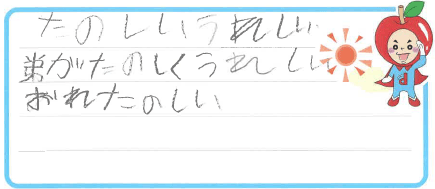 たのしいうれしい
弟がたのしくうれしい
おれたのしい